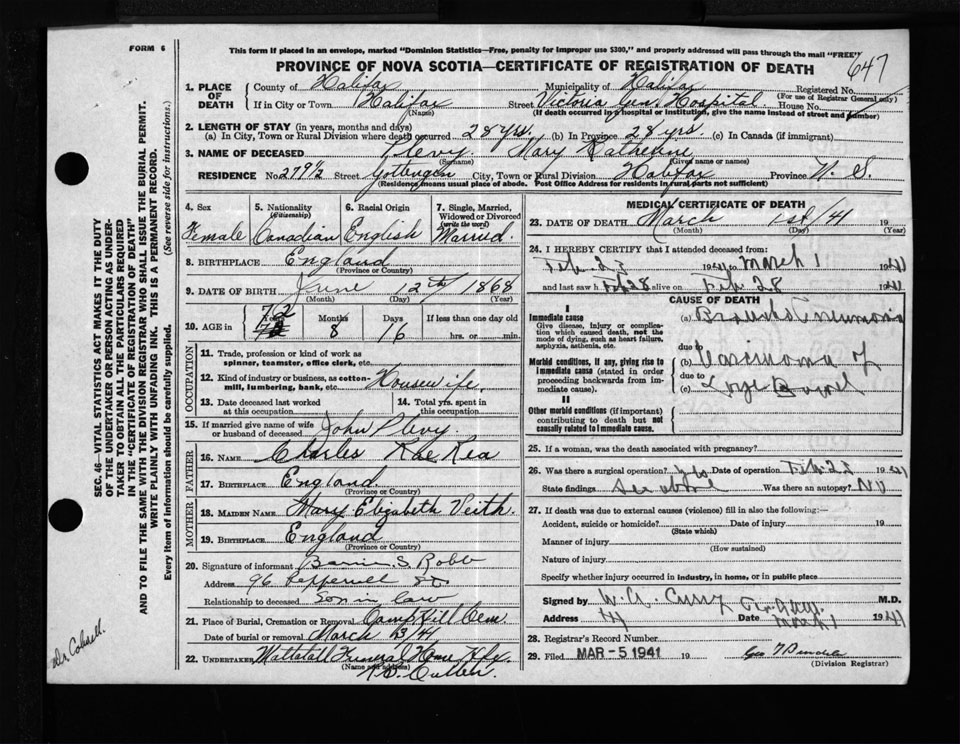 FORM 6
This form if placed in an envelope, marked "Dominion Statistics—Free, penalty for improper use $300," and properly addressed will pass through the mail "FREE"
PROVINCE OF NOVA SCOTIA—CERTIFICATE OF REGISTRATION OF DEATH
647
1. PLACE OF DEATH
County of Halifax
Municipality of Halifax
Registered No.
(For use of Registrar General only)
If in City or Town Halifax
(Name)
Street Victoria Gen. Hospital. House No.
(If death occurred in a hospital or institution, give the name instead of street and number)
2. LENGTH OF STAY (in years, months and days)
(a) In City, Town or Rural Division where death occurred 28 yrs. (b) In Province 28 yrs. (c) In Canada (if immigrant)
3. NAME OF DECEASED Plevy. Mary Katherine
(Surname) (Given name or names)
RESIDENCE No. 279½ Street Gottingen City, Town or Rural Division Halifax Province N. S.
(Residence means usual place of abode. Post Office Address for residents in rural parts not sufficient)
4. Sex
Female
5. Nationality
(Citizenship)
Canadian
6. Racial Origin
English
7. Single, Married, Widowed or Divorced
(write the word)
Married
8. BIRTHPLACE England
(Province or Country)
9. DATE OF BIRTH June 12th 1868
(Month) (Day) (Year)
10. AGE in
Years
72
Months
8
Days
16
If less than one day old
hrs. or min.
OCCUPATION
11. Trade, profession or kind of work as spinner, teamster, office clerk, etc.
12. Kind of industry or business, as cotton-mill, lumbering, bank, etc. Housewife
13. Date deceased last worked at this occupation
14. Total yrs. spent in this occupation
15. If married give name of wife or husband of deceased John Plevy.
FATHER
16. NAME Charles Rea
17. BIRTHPLACE England
(Province or Country)
MOTHER
18. MAIDEN NAME Mary Elizabeth Veith.
19. BIRTHPLACE England
(Province or Country)
20. Signature of informant S. Robb
Address 96 St
Relationship to deceased Son in law
21. Place of Burial, Cremation or Removal Camp Hill Cem.
Date of burial or removal March 3/41
22. UNDERTAKER Funeral Home Hfx.
(Name and address)
Cullen.
MEDICAL CERTIFICATE OF DEATH
23. DATE OF DEATH March 1st/41 19
(Month) (Day) (Year)
24. I HEREBY CERTIFY that I attended deceased from:
Feb. 23 1941 to March 1 1941
and last saw h alive on Feb 28 1941
CAUSE OF DEATH
I
Immediate cause
Give disease, injury or complication which caused death, not the mode of dying, such as heart failure, asphyxia, asthenia, etc.
(a) Broncho Pneumonia
due to
Morbid conditions, if any, giving rise to immediate cause (stated in order proceeding backwards from immediate cause).
(b) Carcinoma of
due to
(c) Large Bowel
II
Other morbid conditions (if important) contributing to death but not causally related to immediate cause.
25. If a woman, was the death associated with pregnancy?
26. Was there a surgical operation? yes Date of operation Feb. 25 1941
State findings See above Was there an autopsy? No
27. If death was due to external causes (violence) fill in also the following:—
Accident, suicide or homicide? Date of injury 19
(State which)
Manner of injury
(How sustained)
Nature of injury
Specify whether injury occurred in industry, in home, or in public place
Signed by W. A. Curry M.D.
Address Date March 1 1941
28. Registrar's Record Number
29. Filed MAR - 5 1941 19
(Division Registrar)
SEC. 46—VITAL STATISTICS ACT MAKES IT THE DUTY OF THE UNDERTAKER OR PERSON ACTING AS UNDERTAKER TO OBTAIN ALL THE PARTICULARS REQUIRED IN THE "CERTIFICATE OF REGISTRATION OF DEATH" AND TO FILE THE SAME WITH THE DIVISION REGISTRAR WHO SHALL ISSUE THE BURIAL PERMIT.
WRITE PLAINLY WITH UNFADING INK. THIS IS A PERMANENT RECORD.
Every item of information should be carefully supplied. (See reverse side for instructions.)
Dr.